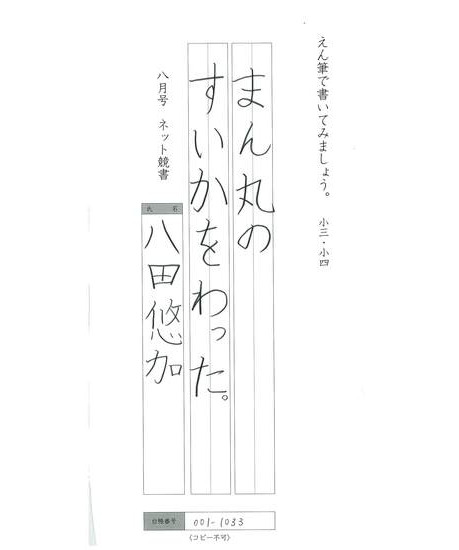 えん筆で書いてみましょう。　小三・小四
まん丸の
すいかをわった。
八月号　ネット競書
氏名
八田悠加
合格番号 001-1033
(コピー不可)